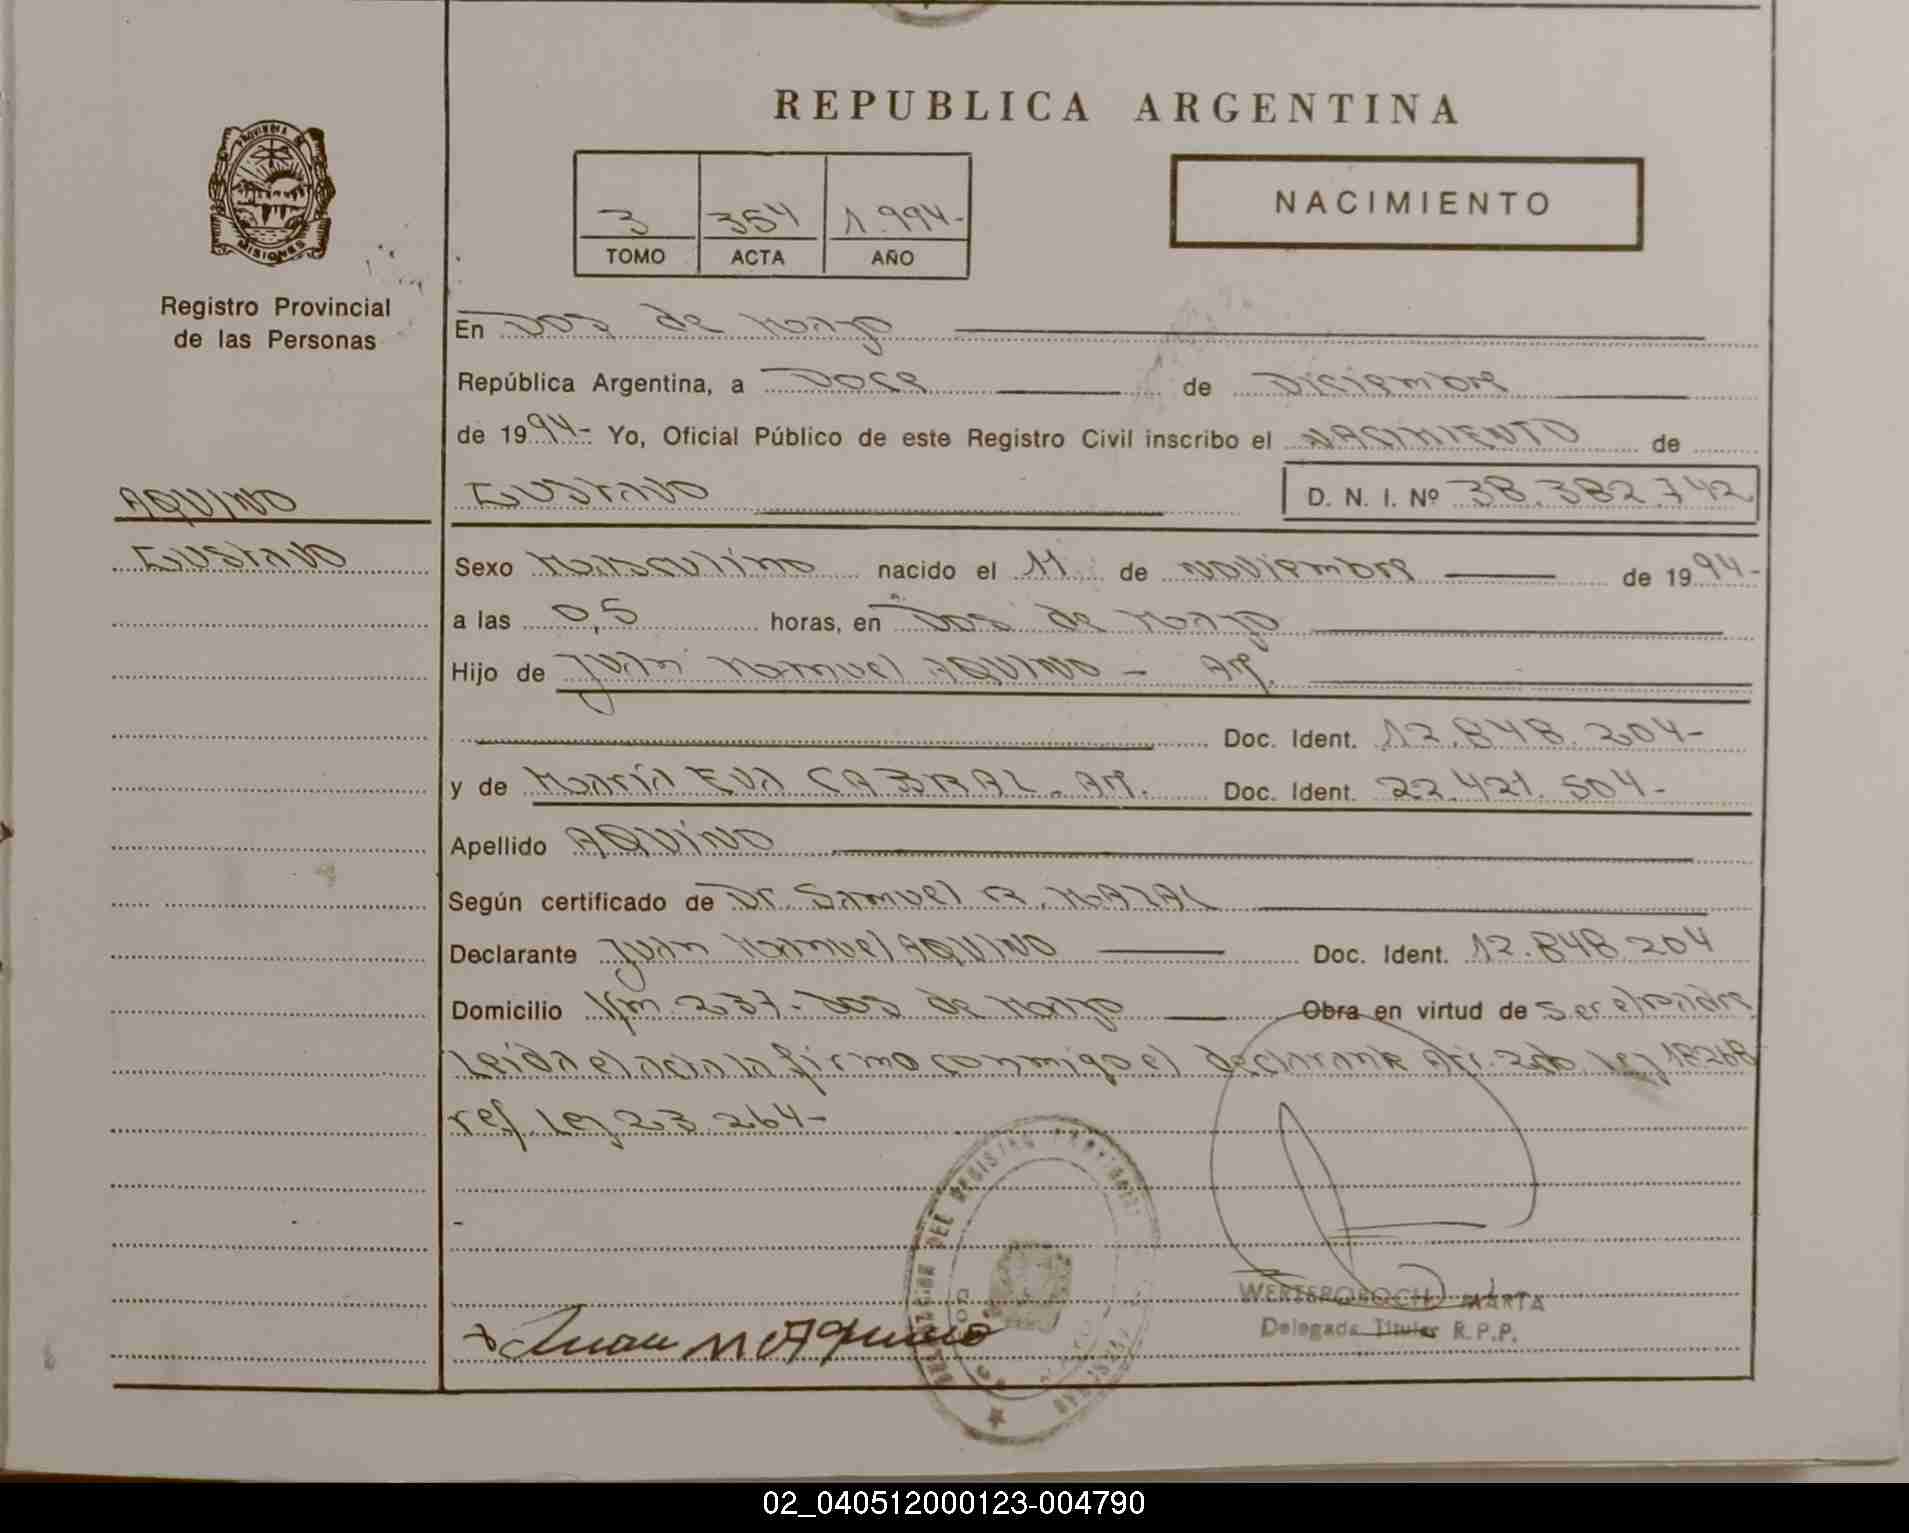 REPUBLICA ARGENTINA
PROVINCIA DE
MISIONES
Registro Provincial
de las Personas
3 354 1.994-
TOMO ACTA AÑO
NACIMIENTO
En Dos de Mayo
República Argentina, a Doce de Diciembre
de 1994- Yo, Oficial Público de este Registro Civil inscribo el NACIMIENTO de
AQUINO
GUSTAVO
GUSTAVO D. N. I. Nº 38.382.742
Sexo Masculino nacido el 11 de Noviembre de 1994-
a las 0,5 horas, en Dos de Mayo
Hijo de Juan Manuel AQUINO - Ar.
Doc. Ident. 12.848.204-
y de María Eva CABRAL. Ar. Doc. Ident. 22.421.504-
Apellido AQUINO
Según certificado de Dr. Samuel R.
Declarante Juan Manuel AQUINO Doc. Ident. 12.848.204
Domicilio Km 237- Dos de Mayo Obra en virtud de Ser el padre
Leida el acta la firma conmigo el declarante Art. 2do Ley 18.268
ref. Ley 23.264-
DEL REGISTRO PROVINCIAL
Juan M Aquino
MARTA
Delegada Titular R.P.P.
02_040512000123-004790